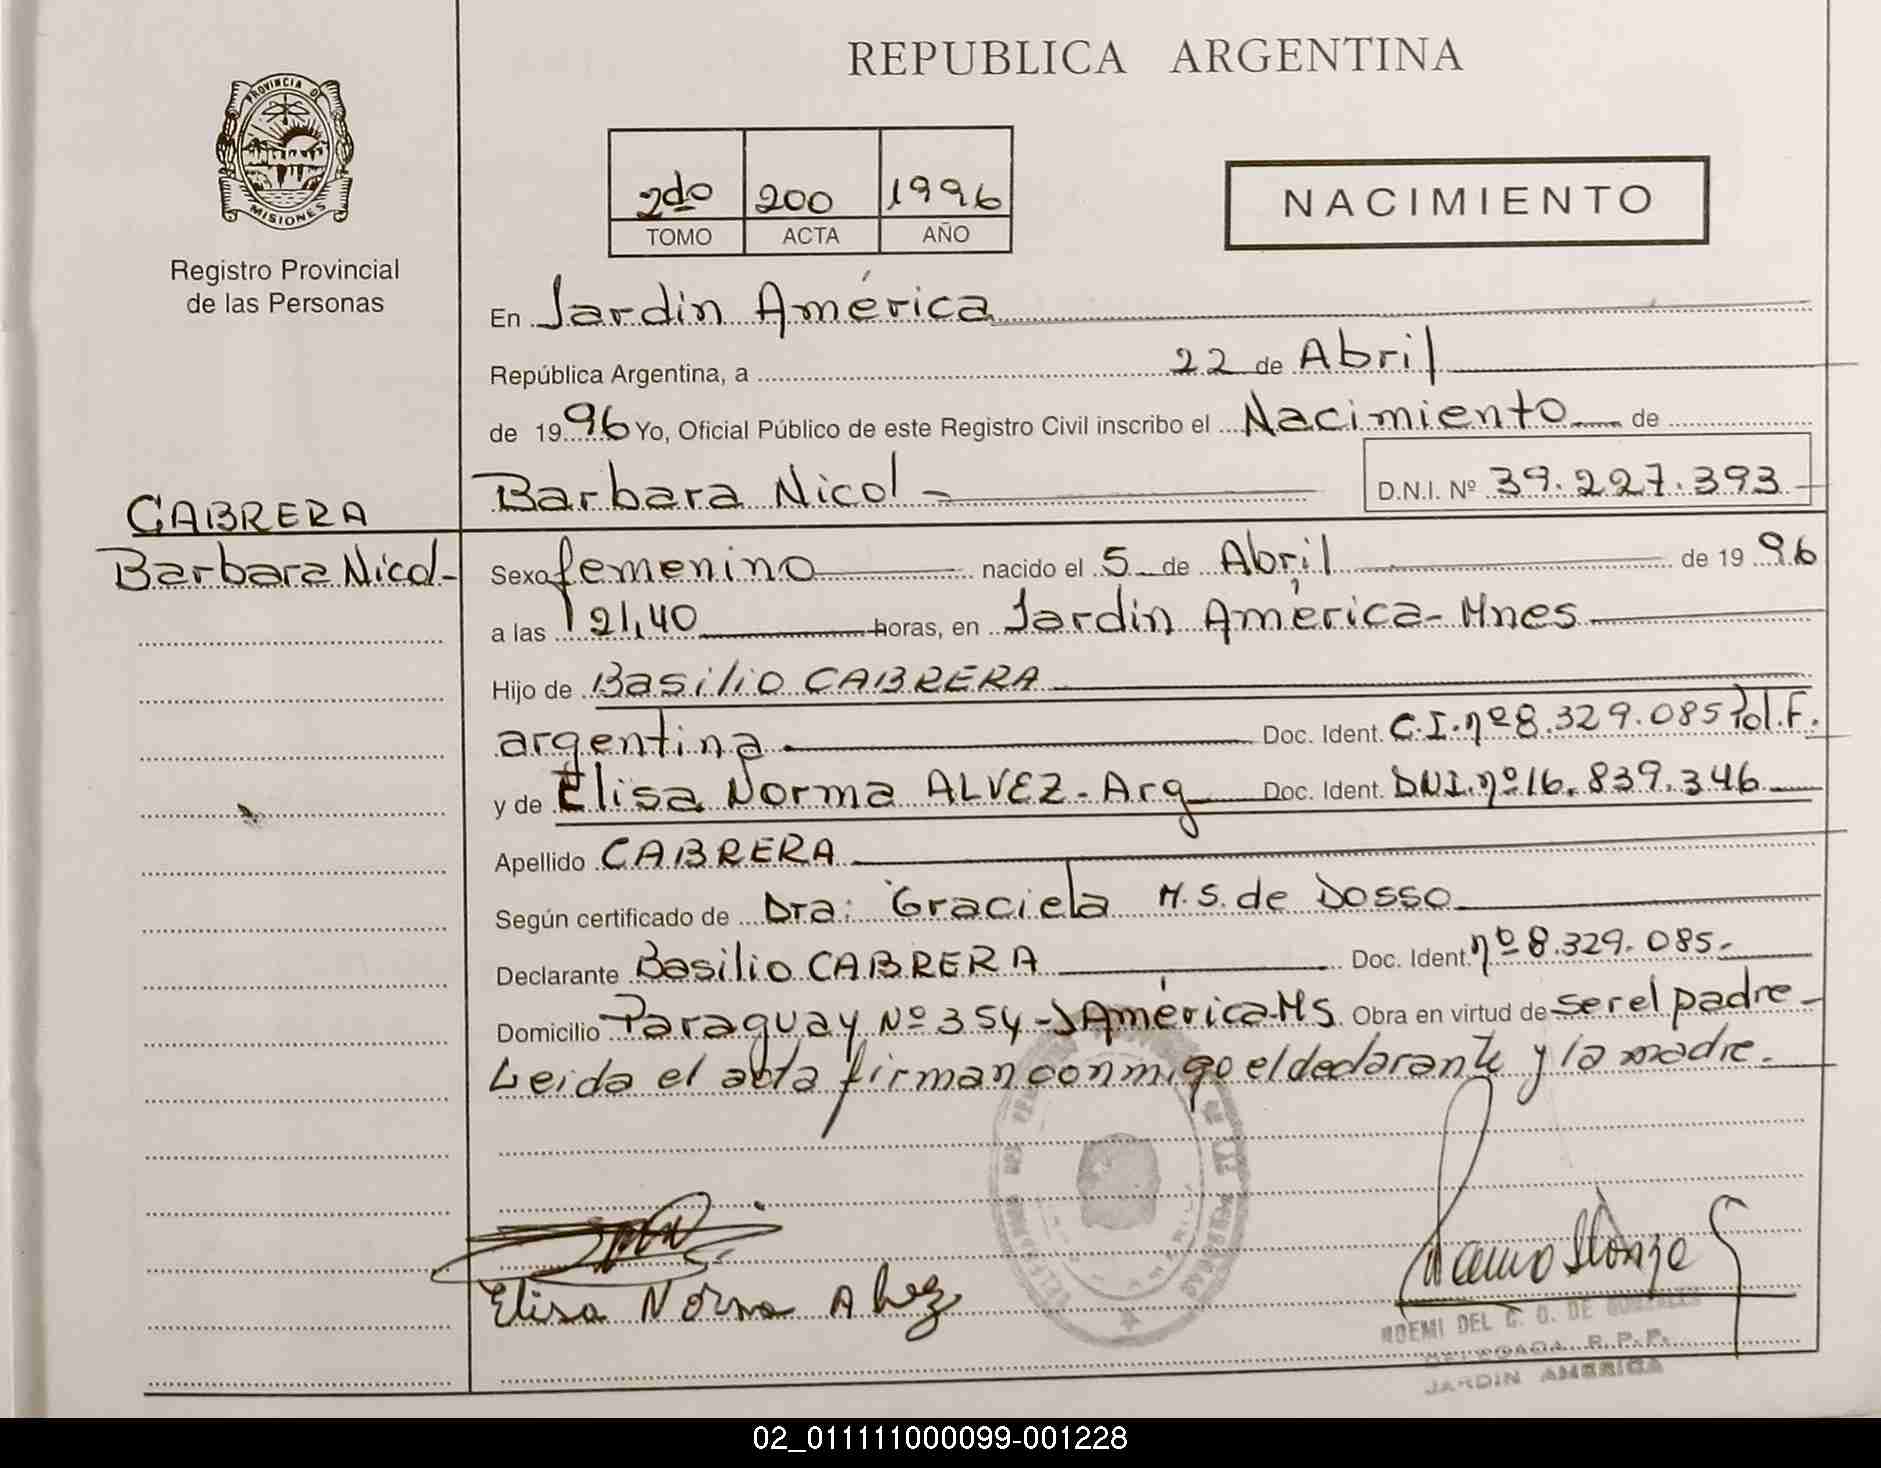 REPUBLICA ARGENTINA
PROVINCIA DE
MISIONES
Registro Provincial
de las Personas
2do 200 1996
TOMO ACTA AÑO
NACIMIENTO
En Jardin América
República Argentina, a 22 de Abril
de 1996 Yo, Oficial Público de este Registro Civil inscribo el Nacimiento de
Barbara Nicol - D.N.I. Nº 39.227.393
CABRERA
Barbara Nicol-
Sexo femenino nacido el 5 de Abril de 1996
a las 21,40 horas, en Jardin América-Mnes
Hijo de Basilio CABRERA
argentina Doc. Ident. C.I. nº 8.329.085 Pol.F.
y de Elisa Norma ALVEZ-Arg Doc. Ident. DNI. nº 16.839.346
Apellido CABRERA
Según certificado de Dra: Graciela M.S. de Dosso
Declarante Basilio CABRERA Doc. Ident. nº 8.329.085-
Domicilio Paraguay Nº 354-J América-Ms Obra en virtud de ser el padre-
Leida el acta firman conmigo el declarante y la madre.
Elisa Norma Alvez
NOEMI DEL C. O. DE GONZALEZ
DELEGADA R.P.P.
JARDIN AMERICA
02_011111000099-001228